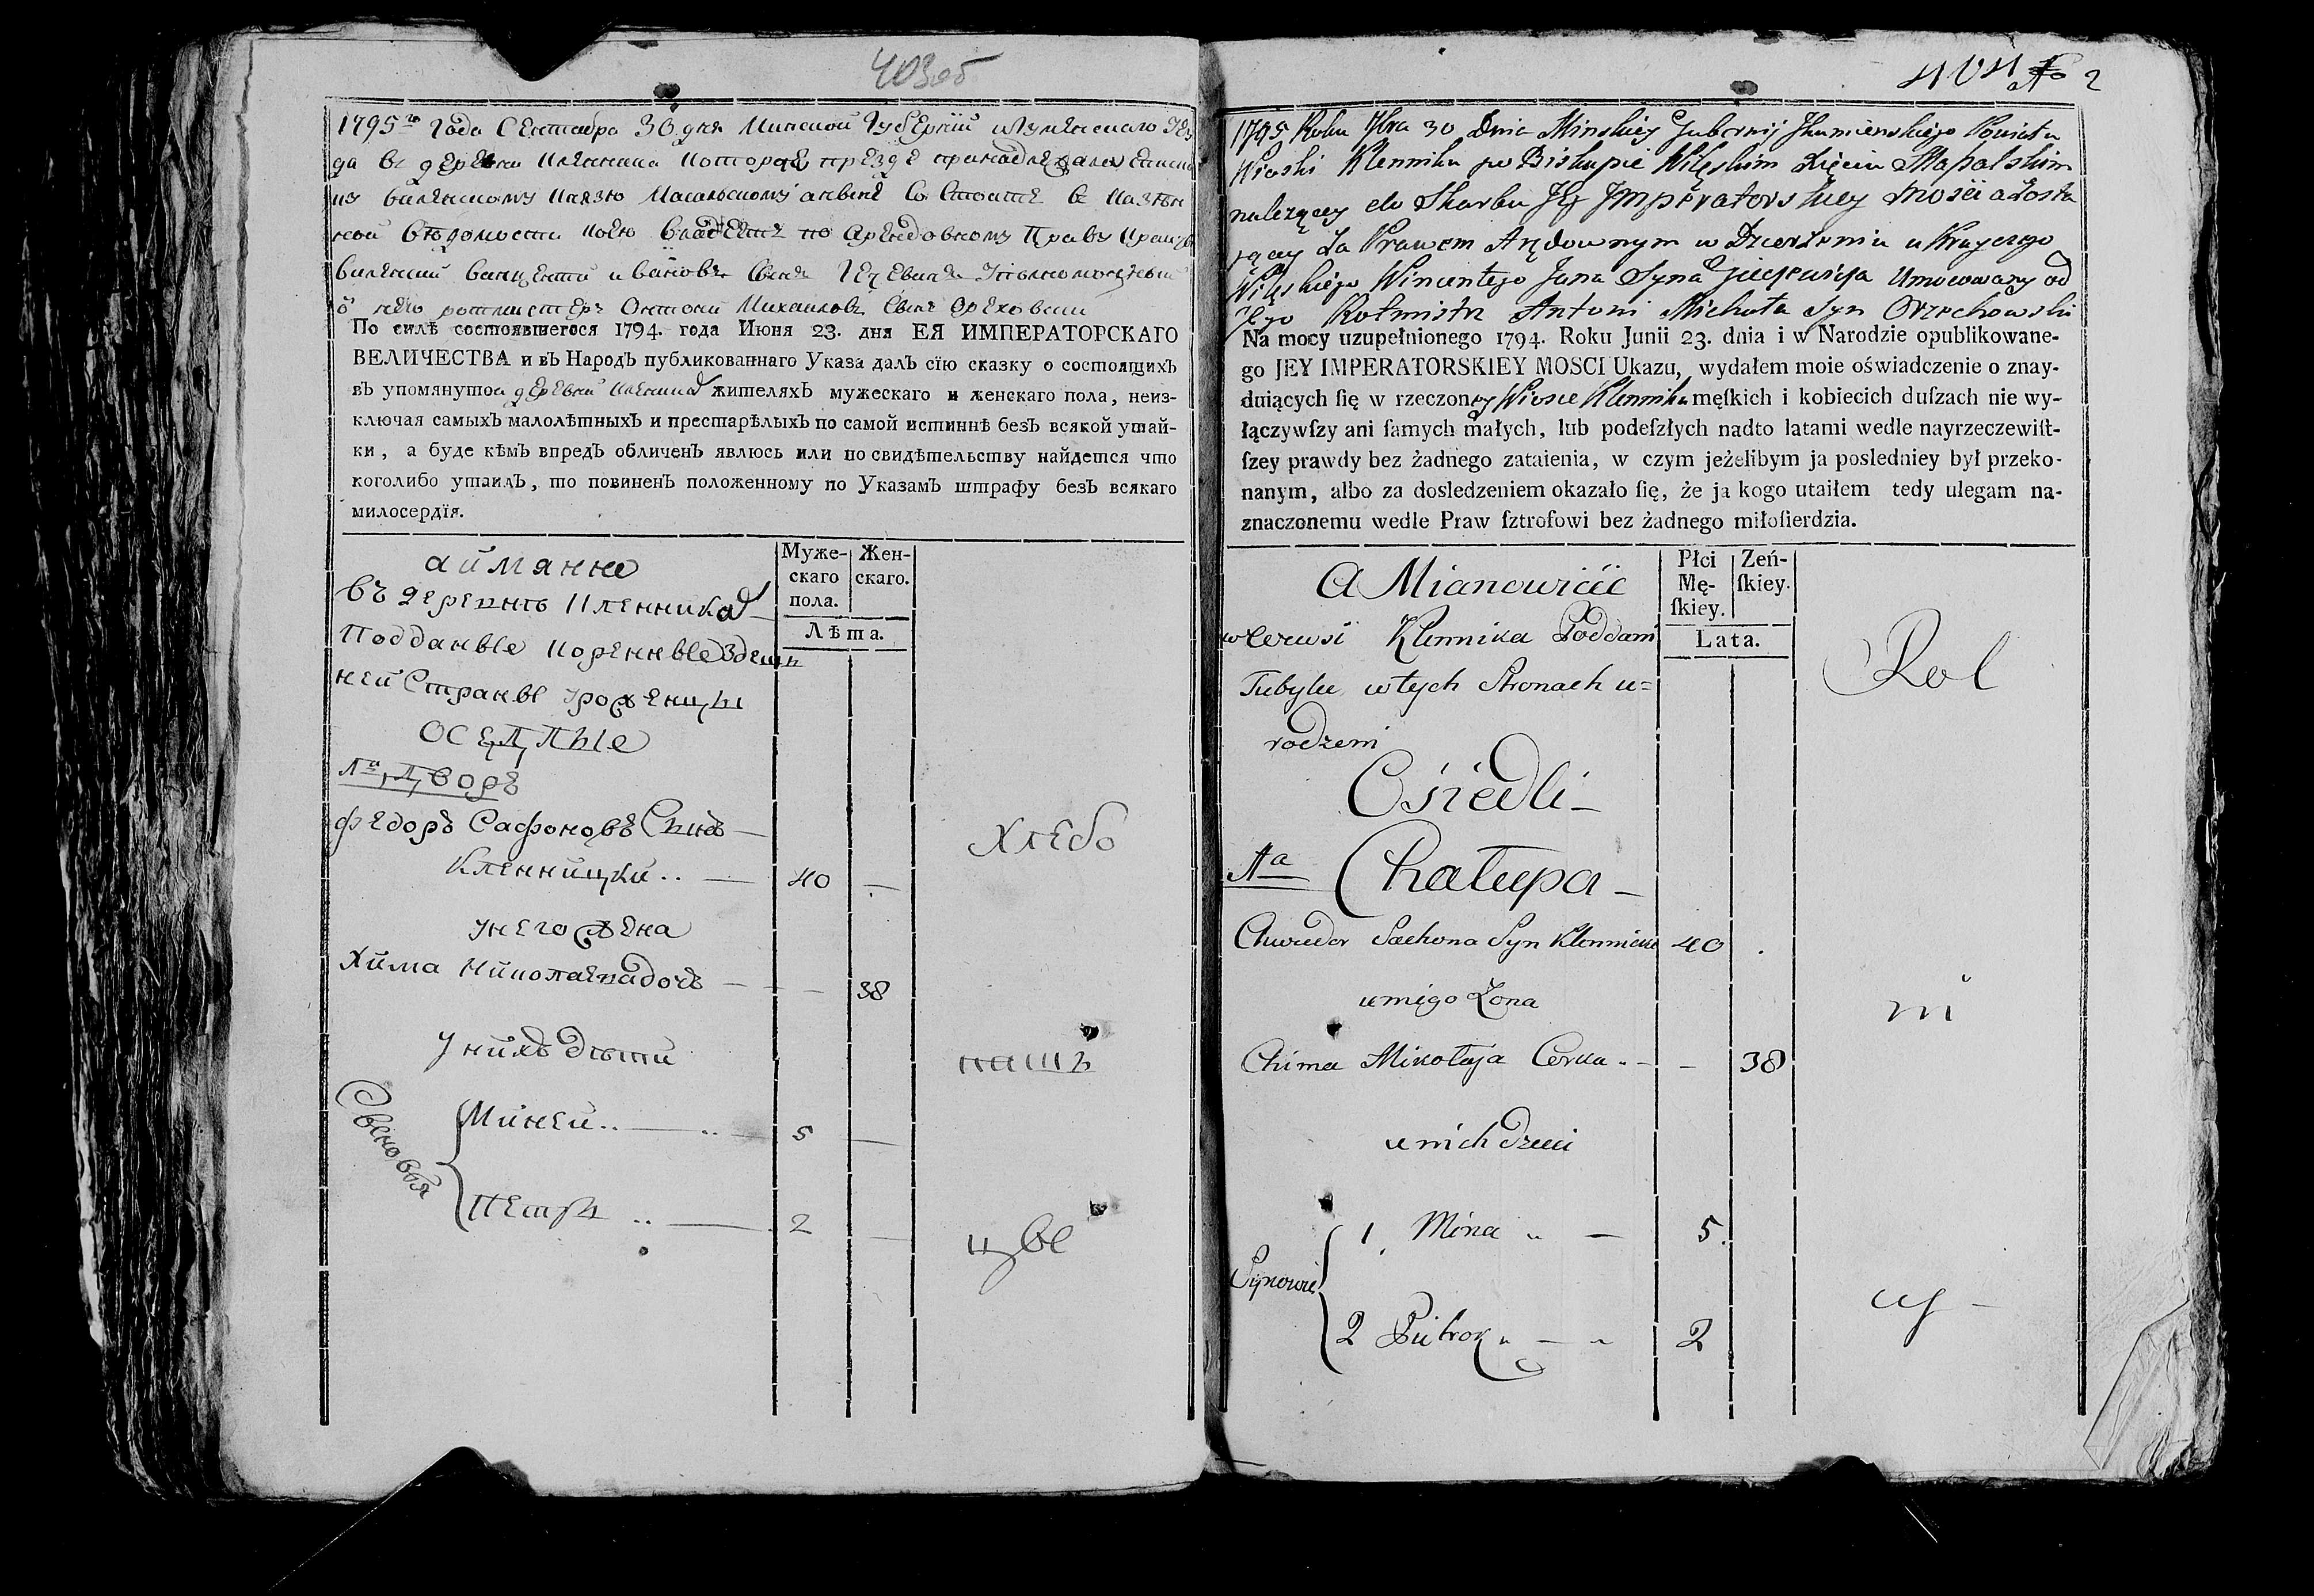 403об
1795го Года Сентября 30 дня Минской Губернии Игуменскаго Уез
да въ деревни Кленника которая презде принадлежала Епископ
ну виленскому Князю Масальскому анынѣ Состоитъ въ Казен
ной вѣдомости коею владеетъ по Арендовному Праву Крайчи
виленский Винценти ивановъ Сынъ
о него ротмистеръ Онтони Михаиловъ Сынъ Ореховски
По силѣ состоявшегося 1794. года Июня 23. дня ЕЯ ИМПЕРАТОРСКАГО
ВЕЛИЧЕСТВА и въ Народъ публикованнаго Указа далъ сїю сказку о состоящихъ
въ упомянутои деревни Кленника жителяхъ мужескаго и женскаго пола, неиз-
ключая самыхъ малолѣтныхъ и престарѣлыхъ по самой истиннѣ безъ всякой утай-
ки, а буде кѣмъ впредъ обличенъ явлюсь или по свидѣтельству найдется что
коголибо утаилъ, то повиненъ положенному по Указамъ штрафу безъ всякаго
милосердїя.
Муже-скаго пола. Жен-скаго.
Лѣта.
аимянно
въ деревнѣ Кленника
Подданые коренные здеш
ней Страны урожёнцы
оседлые
1а дворъ
Федоръ Сафоновъ Сынъ —
Кленницки .. — 40 —
унего жена
Хима Николаева дочь — — 38
унихъ дети
Сыновья
Миней .. — .. — 5 —
Петръ .. — 2 —
хлебо
паш
цы
404 2
1795 Roku 7bra 30 Dnia Minskiey Gubernij Jhumienskiego Powiatu
Wioski Klennika po Biskupie Wileskim Xięciu Massalskim
nalezący do Skarbu Jey Jmperatorskiey Mosci a Zosta
jący Za Prawem Arędownym w Dzierżeniu u Krayczego
Wileskiego Wincentego Jana Syna Giecewicza Umocowany od
Jego Rotmistrz Antoni Michała Syn Orzechowski
Na mocy uzupełnionego 1794. Roku Junii 23. dnia i w Narodzie opublikowane-
go JEY IMPERATORSKIEY MOSCI Ukazu, wydałem moie oświadczenie o znay-
duiących ſię w rzeczoney Wiosce Klennika męſkich i kobiecich duſzach nie wy-
łączywſzy ani ſamych małych, lub podeſzłych nadto latami wedle nayrzeczewiſt-
ſzey prawdy bez żadnego zataienia, w czym jeżelibym ja posledniey był przeko-
nanym, albo za dosledzeniem okazało ſię, że ja kogo utaiłem tedy ulegam na-
znaczonemu wedle Praw ſztrofowi bez żadnego miłoſierdzia.
Płci Mę-ſkiey. Zeń-ſkiey.
Lata.
A Mianowicie
wewsi Klennika Poddani
Tubylce wtych Stronach u=
rodzeni
Osiedli —
1a Chałupa —
Chwiedor Sachona Syn Klennicki 40 .
uniego Zona
Chima Mikołaja Corka .. — — 38
unich Dzieci
Synowie
1. Mina „ — 5.
2 Pietrok „ — „ 2
Rol
ni
cy —